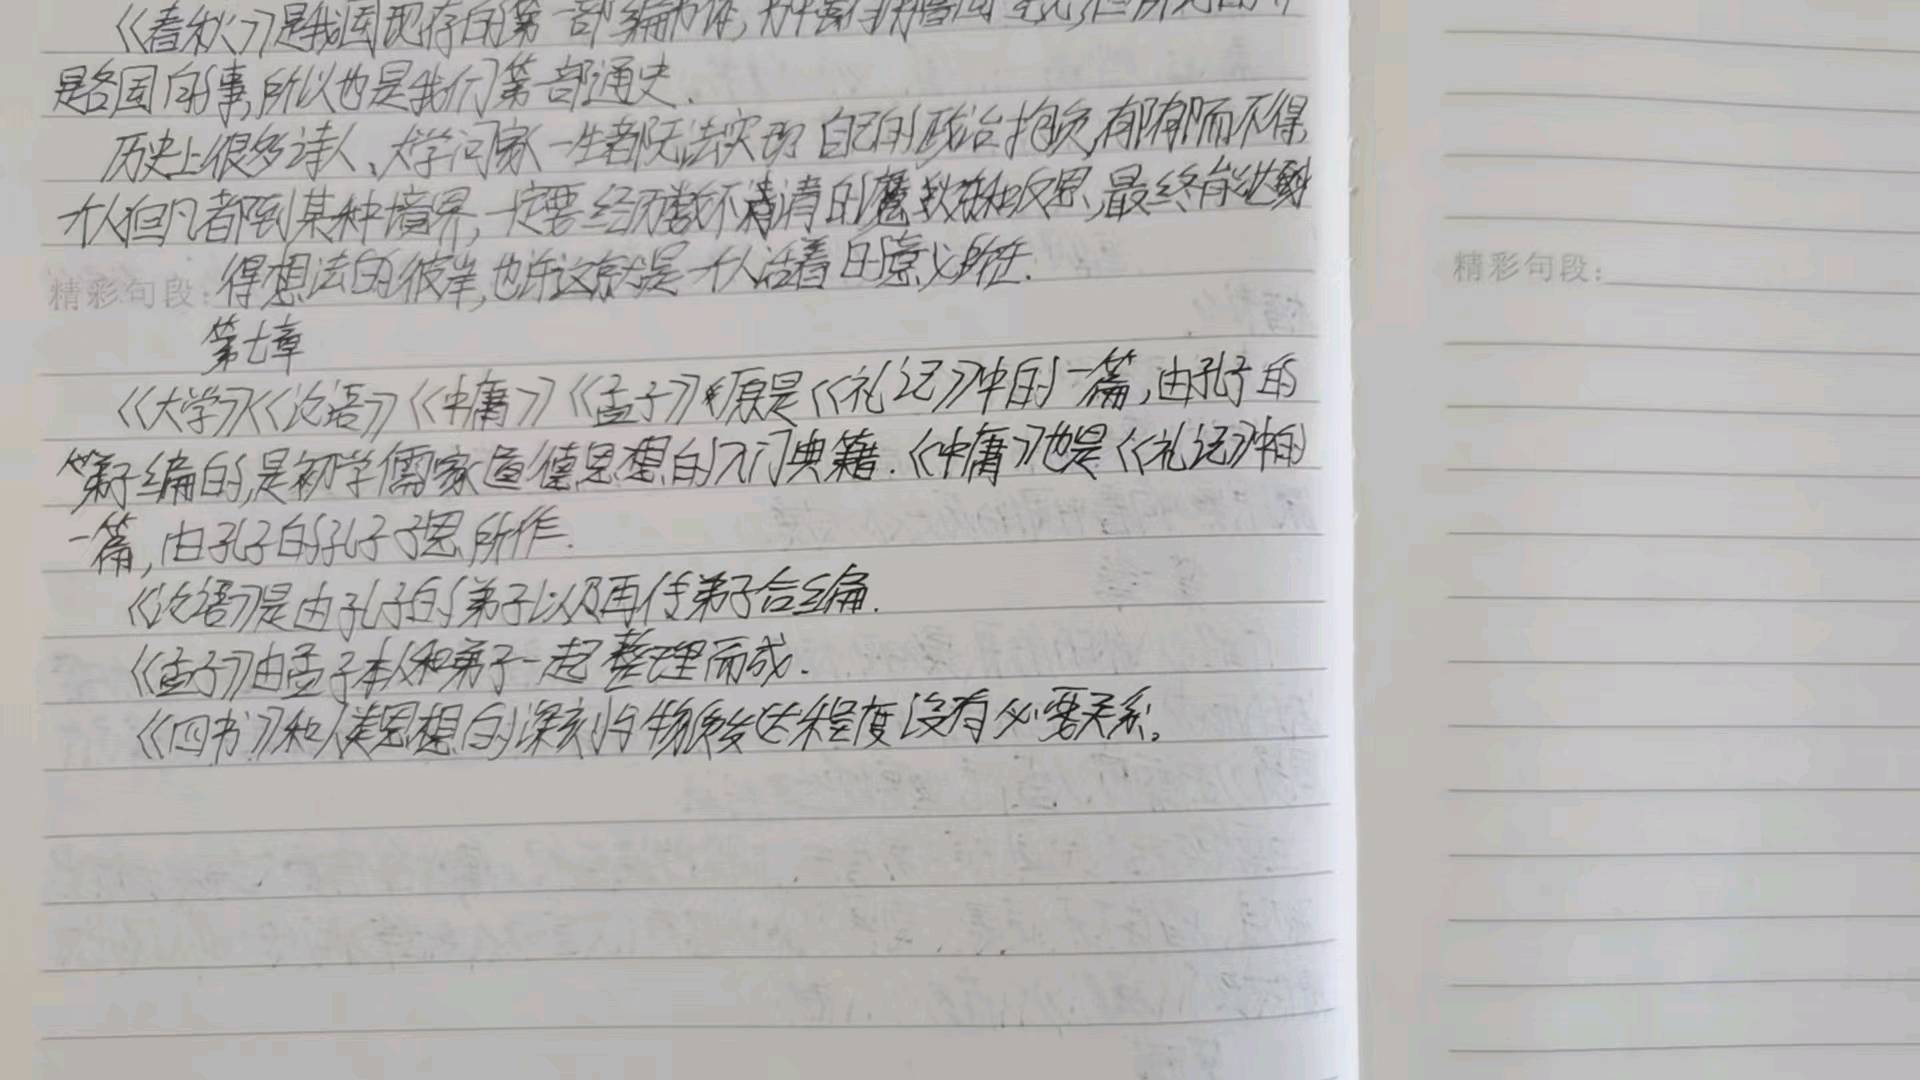 《春秋》是我国现存的第一部编年体,
是各国的事,所以也是我们第一部通史.
历史上很多诗人、大学问家一生都无法实现自己的政治抱负,郁郁而不得,
个人但凡都到某种境界,一定要经历数不清的和反思,最终能达到
精彩句段:得想法的彼岸,也许这就是个人活着的意义所在.
第七章
《大学》《论语》《中庸》《孟子》原是《礼记》中的一篇,由孔子的
弟子编的,是初学儒家道德思想的入门典籍.《中庸》也是《礼记》中的
一篇,由孔子的孔子子思所作.
《论语》是由孔子的弟子以及再传弟子合编.
《孟子》由孟子本人和弟子一起整理而成.
《四书》和人类思想的深刻与物质发达程度没有必要关系。
精彩句段: